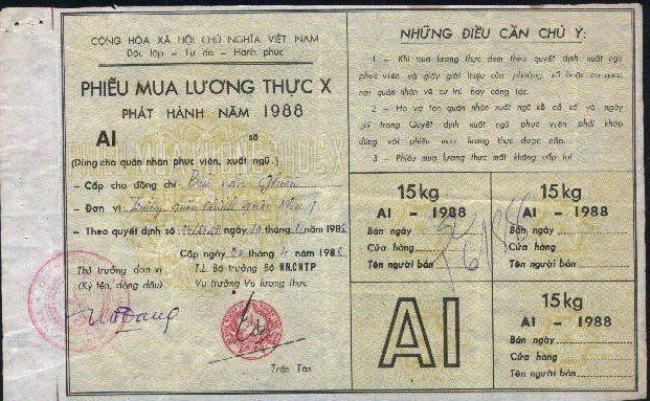 CỘNG HÒA XÃ HỘI CHỦ NGHĨA VIỆT NAM
Độc lập – Tự do – Hạnh phúc
PHIẾU MUA LƯƠNG THỰC X
PHÁT HÀNH NĂM 1988
AI số
(Dùng cho quân nhân phục viên, xuất ngũ.)
– Cấp cho đồng chí: Bùi văn
– Đơn vị: Trường quân chính quân khu 1
– Theo quyết định số: ngày tháng năm 198
Cấp ngày 20 tháng 4 năm 198
Thủ trưởng đơn vị
(Ký tên, đóng dấu)
T.L. Bộ trưởng Bộ NN.CNTP
Vụ trưởng Vụ lương thực
Trần Tân
NHỮNG ĐIỀU CẦN CHÚ Ý:
1 – Khi mua lương thực đem theo quyết định xuất ngũ
phục viên và giấy giới thiệu của phường, xã hoặc cơ quan
nơi quân nhân về cư trú hay công tác.
2 – Họ và tên quân nhân xuất ngũ kể cả số và ngày
ghi trong Quyết định xuất ngũ phục viên phải khớp
đúng với phiếu mua lương thực được cấp.
3 – Phiếu mua lương thực mất không cấp lại
15kg
AI – 1988
Bán ngày
Cửa hàng
Tên người bán
15kg
AI – 1988
Bán ngày
Cửa hàng
Tên người bán
AI
15kg
AI – 1988
Bán ngày
Cửa hàng
Tên người bán